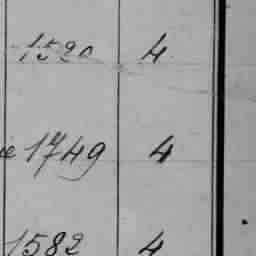 1520 4
1749 4
1582 4